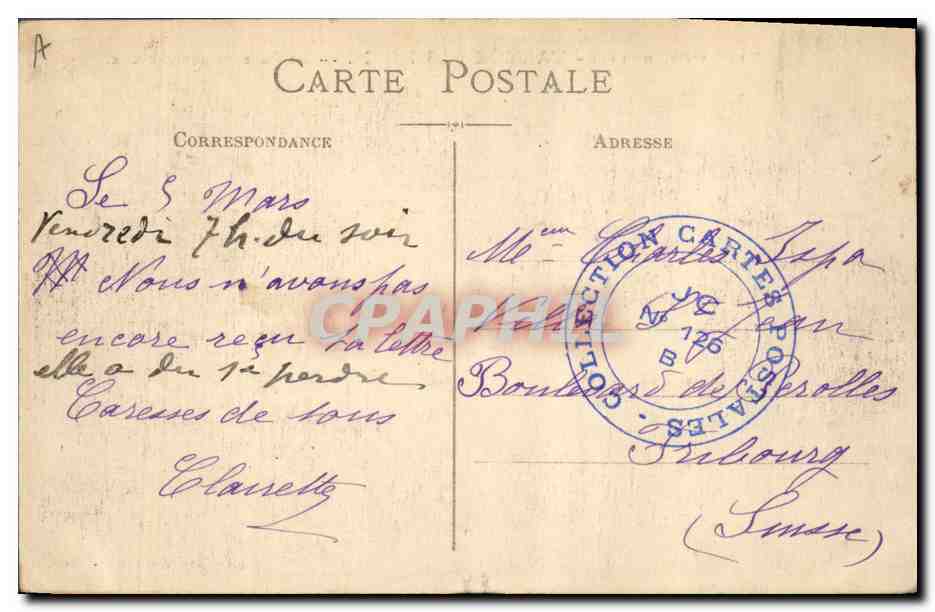 A
CARTE POSTALE
CORRESPONDANCE
ADRESSE
Le 5 Mars
Vendredi 7h. du soir
Nous n'avons pas
encore reçu ta lettre
elle a du se perdre
Caresses de tous
Clairette
Charles
St Jean
Boulevard de Perolles
Fribourg
(Suisse)
COLLECTION CARTES POSTALES
JC
No 126
B
CPAPHIL